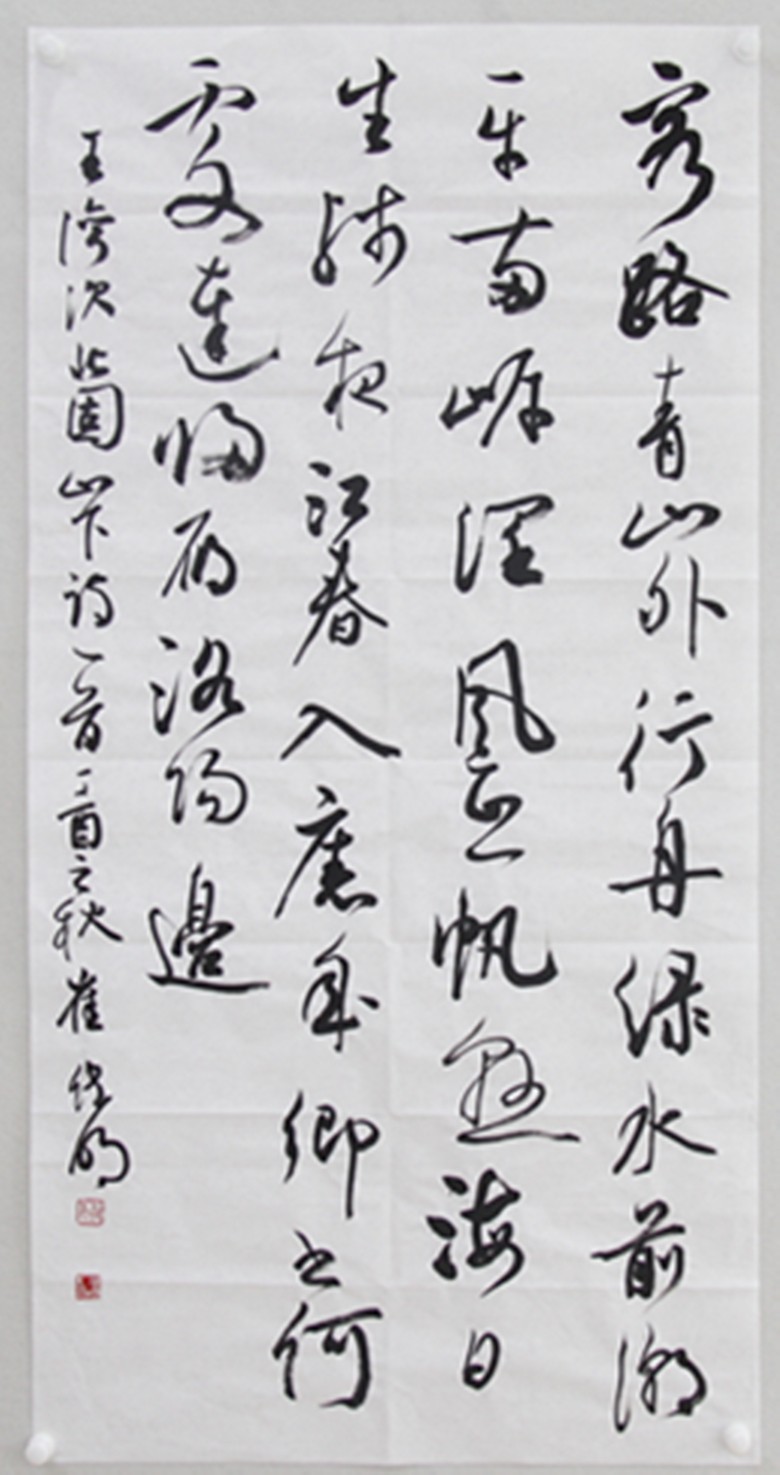 客路青山外行舟绿水前潮
平两岸阔风正一帆悬海日
生残夜江春入舊年鄉书何
處達归雁洛阳邊
王湾次北固山下诗一首丁酉之秋崔